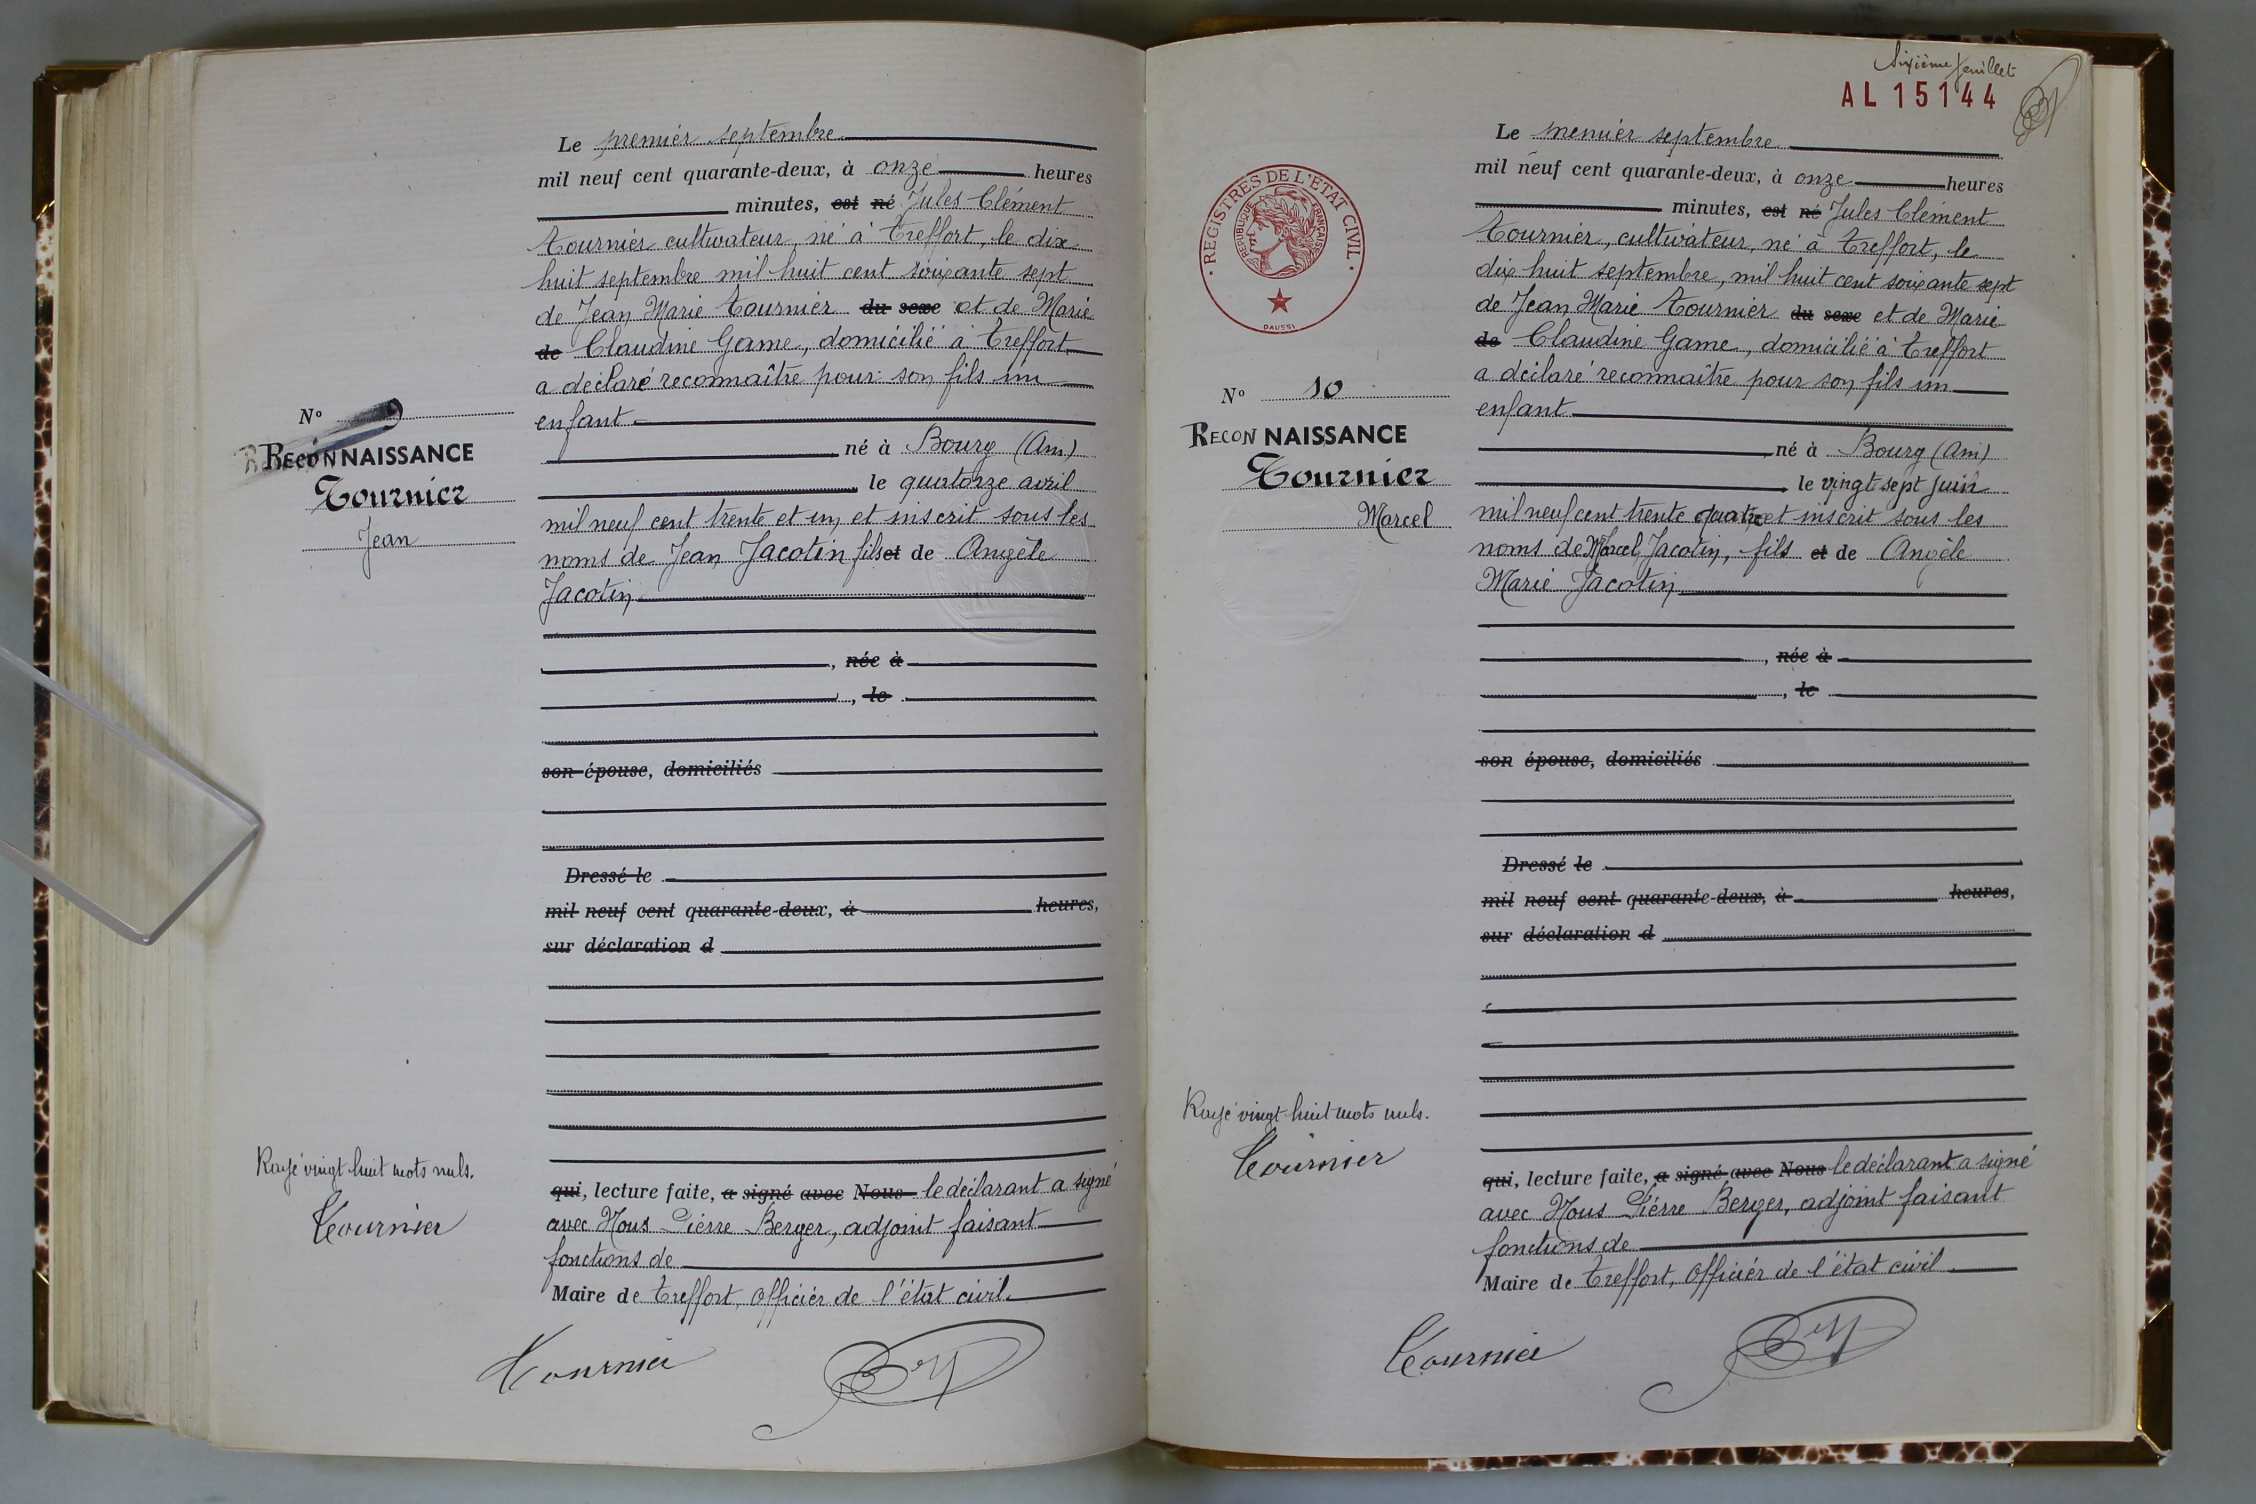 Le premier septembre
mil neuf cent quarante-deux, à onze heures
minutes, est né Jules Clément
Tournier cultivateur, né à Treffort, le dix
huit septembre mil huit cent soixante sept
de Jean Marie Tournier du sexe et de Marie
de Claudine Game, domicilié à Treffort
a déclaré reconnaître pour son fils un
enfant
né à Bourg (Ain)
le quatorze avril
mil neuf cent trente et un et inscrit sous les
noms de Jean Jacotin fils et de Angèle
Jacotin
, née à
, le
son épouse, domiciliés
Dressé le
mil neuf cent quarante-deux, à heures,
sur déclaration d
qui, lecture faite, a signé avec Nous le déclarant a signé
avec Nous Pierre Berger, adjoint faisant
fonctions de
Maire de Treffort, officier de l'état civil.
Tournier
N° 9
RECONNAISSANCE
Tournier
Jean
Rayé vingt huit mots nuls.
Tournier
Sixième feuillet
AL 15144
Le premier septembre
mil neuf cent quarante-deux, à onze heures
minutes, est né Jules Clément
Tournier, cultivateur, né à Treffort, le
dix huit septembre, mil huit cent soixante sept
de Jean Marie Tournier du sexe et de Marie
de Claudine Game, domicilié à Treffort
a déclaré reconnaître pour son fils un
enfant
né à Bourg (Ain)
le vingt sept juin
mil neuf cent trente quatre et inscrit sous les
noms de Marcel Jacotin, fils et de Angèle
Marie Jacotin
, née à
, le
son épouse, domiciliés
Dressé le
mil neuf cent quarante-deux, à heures,
sur déclaration d
qui, lecture faite, a signé avec Nous le déclarant a signé
avec Nous Pierre Berger, adjoint faisant
fonctions de
Maire de Treffort, officier de l'état civil
Tournier
· REGISTRES DE L'ÉTAT CIVIL ·
RÉPUBLIQUE FRANÇAISE
DAUSSI
N° 10
RECONNAISSANCE
Tournier
Marcel
Rayé vingt-huit mots nuls.
Tournier